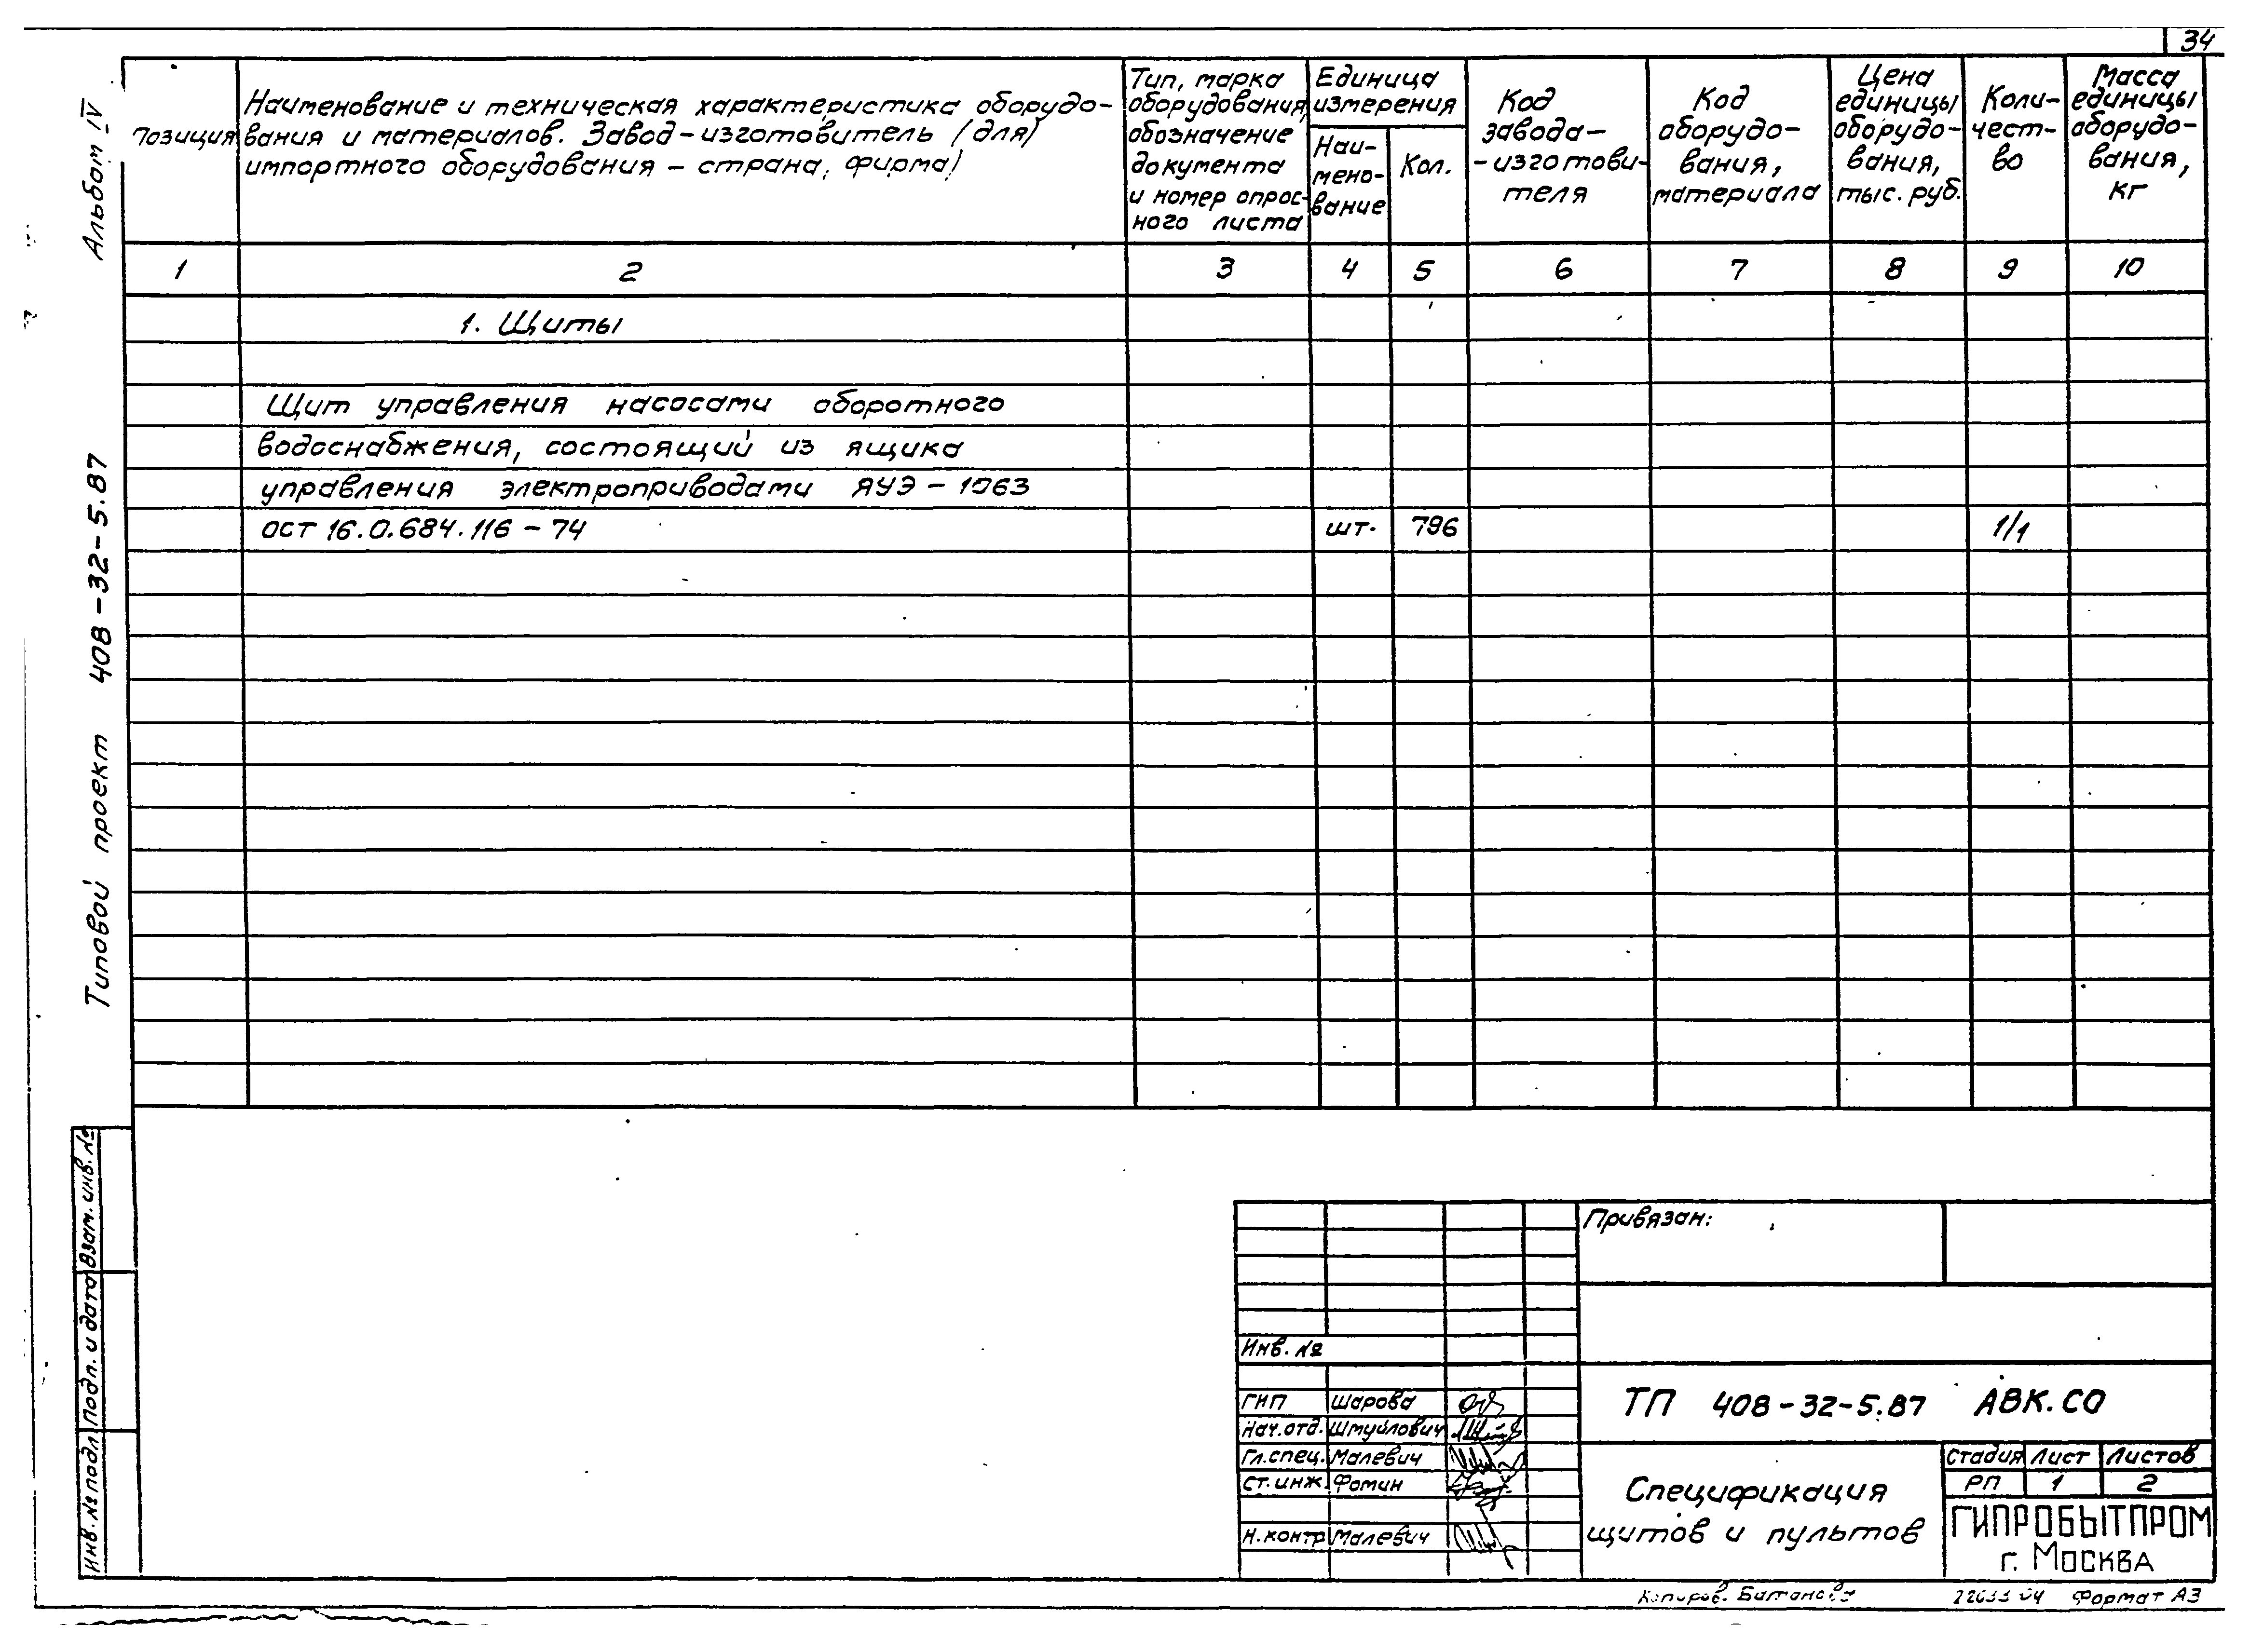 34
Альбом IV
Типовой проект 408-32-5.87
Позиция
Наименование и техническая характеристика оборудо-
вания и материалов. Завод-изготовитель (для)
импортного оборудования - страна, фирма)
Тип, марка
оборудования,
обозначение
документа
и номер опрос-
ного листа
Единица
измерения
Наи-
мено-
вание
Кол.
Код
завода-
-изготови-
теля
Код
оборудо-
вания,
материала
Цена
единицы
оборудо-
вания,
тыс. руб.
Коли-
чест-
во
Масса
единицы
оборудо-
вания,
кг
1 2 3 4 5 6 7 8 9 10
1. Щиты
Щит управления насосами оборотного
водоснабжения, состоящий из ящика
управления электроприводами ЯУЭ-1063
ост 16.0.684.116-74 шт. 796 1/1
Взам. инв. №
Подп. и дата
Инв. № подл.
Привязан:
Инв. №
ГИП Шарова
Нач. отд. Шмуйлович
Гл. спец. Малевич
Ст. инж. Фомин
Н. контр Малевич
ТП 408-32-5.87 АВК.СО
Спецификация
щитов и пультов
Стадия Лист Листов
РП 1 2
ГИПРОБЫТПРОМ
г. Москва
Копиров. 04 Формат А3